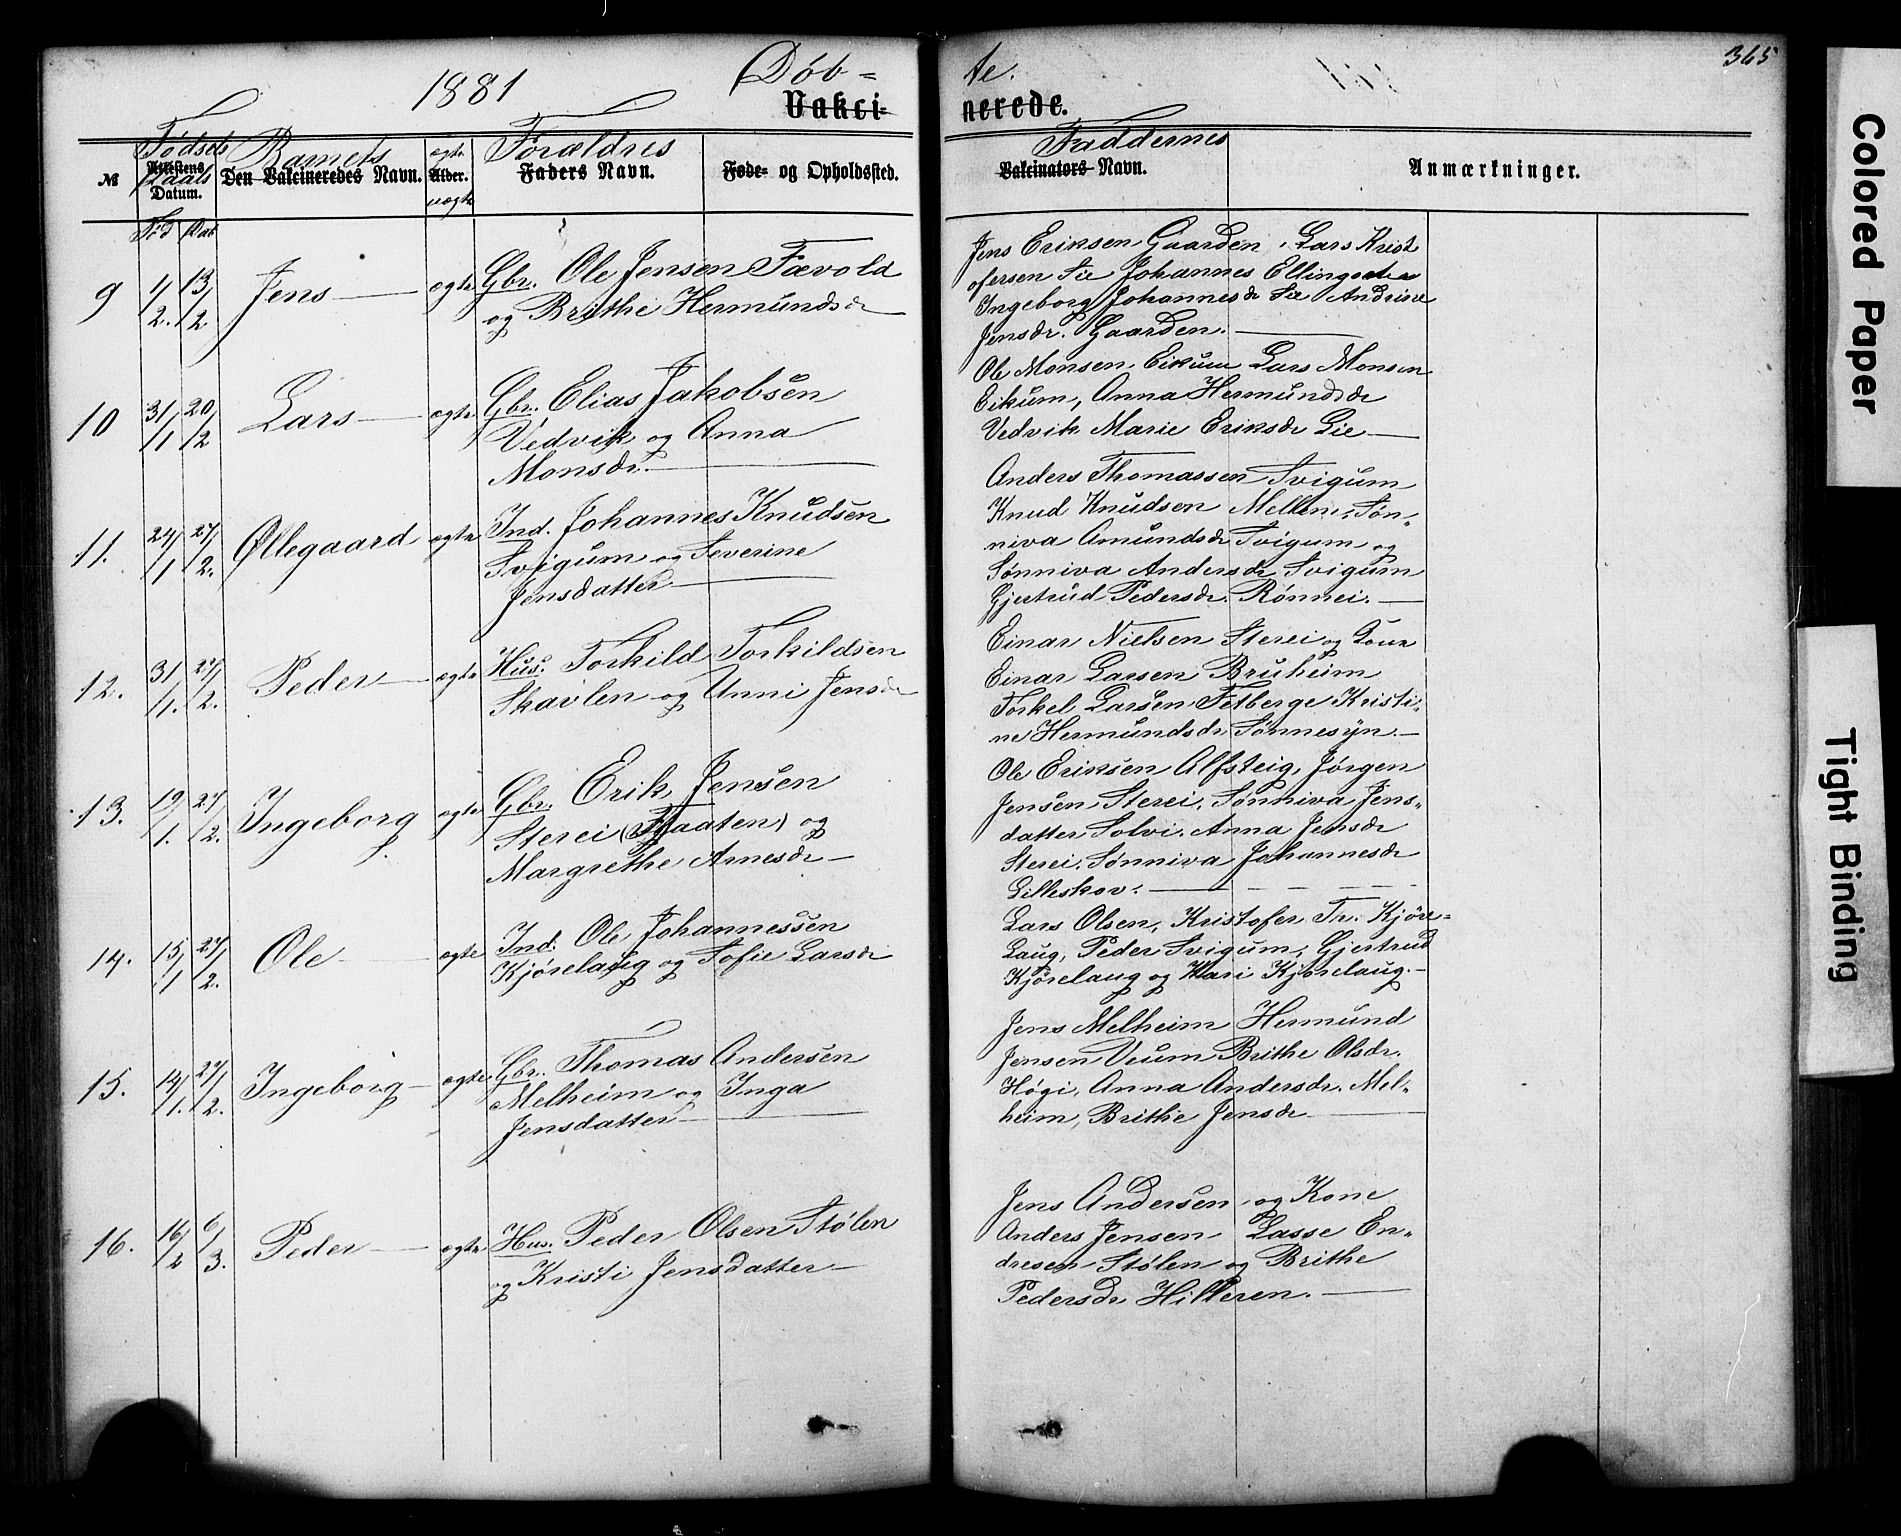 365
1881
Døb=
te.
Vakci-
nerede.
Fødsels
Daabs
№
Attestens
Datum.
Barnets
Den Vakcineredes Navn.
ægte
Alder.
uægte
Forældres
Faders Navn.
Føde- og Opholdssted.
Faddernes
Vakcinators Navn.
Anmærkninger.
Fød Døb
9 4/2. 13/2 Jens — ægte Gbr. Ole Jensen Fævold
og Brithe Hermundsdr
Jens Eriksen Gaarden, Lars Krist
ofersen Lie Johannes Ellingsen
Ingeborg Johannesdr Lie Andrine
Jensdr. Gaarden. —
10 31/1 20/2 Lars — ægte Gbr. Elias Jakobsen
Vedvik og Anna
Monsdr. —
Ole Monsen Eikum Lars Monsen
Eikum, Anna Hermundsdr
Vedvik Marie Eriksdr Lie —
11. 24/1 27/2. Øllegaard ægte Ind. Johannes Knudsen
Svigum og Severine
Jensdatter —
Anders Thomassen Svigum
Knud Knudsen Mellem, Søn-
niva Amundsdr Svigum og
Sønniva Andersdr Svigum
Gjertrud Pedersdr. Rønnei. —
12. 31/1. 27/2. Peder — ægte Hus. Torkild Torkildsen
Skavlen og Unni Jensdr
Einar Nielsen Sterei og Kone
Einar Larsen Bruheim
Torkel Larsen Fetberge Kristi-
ne Hermundsdr Sønnesyn. —
13. 19/1. 27/2. Ingeborg ægte Gbr. Erik Jensen
Sterei (Flaaten) og
Margrethe Arnesdr —
Ole Eriksen Alfsteig, Jørgen
Jensen Sterei, Sønniva Jens-
datter Solvi. Anna Jensdr
Sterei, Sønniva Johannesdr
Lilleskov. —
14. 15/1 27/2. Ole — ægte Ind. Ole Johannessen
Kjørelaug og Sofie Larsdr
Lars Olsen, Kristofer Tr. Kjøre-
laug, Peder Svigum, Gjertrud
Kjørelaug og Kari Kjørelaug. —
15. 14/1. 27/2. Ingeborg — ægte Gbr. Thomas Andersen
Melheim og Inga
Jensdatter —
Jens Melheim Hermund
Jensen Veum Brithe Olsdr.
Høgi, Anna Andersdr. Mel-
heim, Brithe Jensdr —
16. 16/2 6/3. Peder — ægte Hus. Peder Olsen Stølen
og Kristi Jensdatter —
Jens Andersen og Kone
Anders Jensen Lasse En-
dresen Stølen og Brithe
Pedersdr Hilleren. —
Colored Paper
Tight Binding